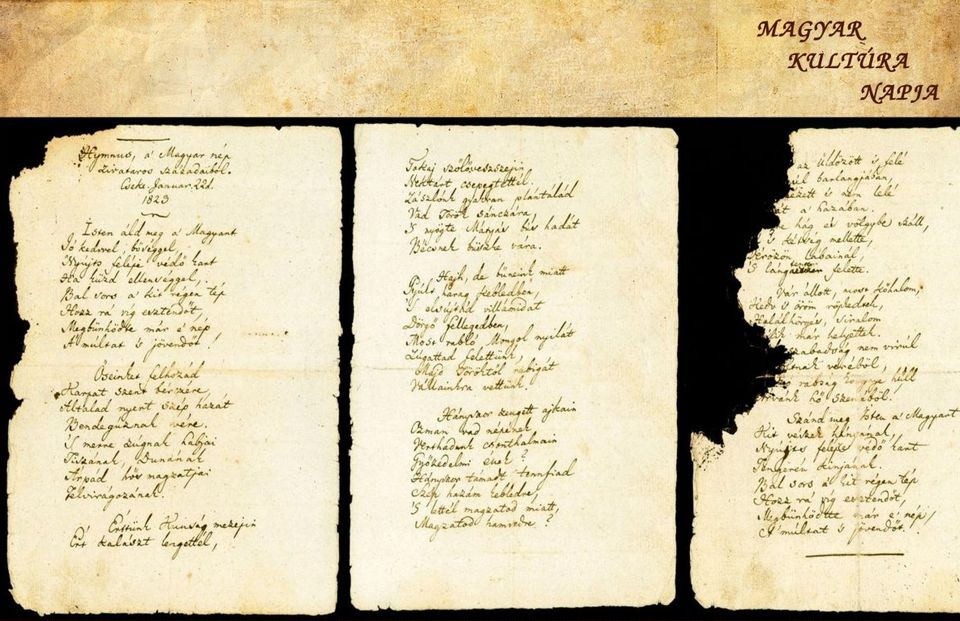 MAGYAR
KULTÚRA
NAPJA
Hymnus, a' Magyar nép
zivataros századaiból.
Cseke. Januar. 22d.
1823
Isten áld meg a' Magyart
Jó kedvvel, bőséggel,
Nyújts feléje védő kart
Ha küzd ellenséggel;
Bal sors a' kit régen tép
Hozz rá víg esztendőt,
Megbűnhödte már e' nép
A' múltat 's jövendőt!
Őseinket felhozád
Kárpát szent bérczére
Általad nyert szép hazát
Bendegúznak vére.
'S merre zúgnak habjai
Tiszának, Dunának
Árpád hős magzatjai
Felvirágozának.
Értünk Kunság mezejin
Ért kalászt lengettél,
Tokaj szőlővesszejin
Nektárt csepegtettél.
Zászlónk gyakran plántálád
Vad Török sánczára
'S nyögte Mátyás bús hadát
Bécsnek büszke vára.
Hajh, de bűneink miatt
Gyúlt harag kebledben,
'S elsújtád villámidat
Dörgő fellegedben,
Most rabló Mongol nyilát
Zúgattad felettünk,
Majd Töröktől rabigát
Vállainkra vettünk.
Hányszor zengett ajkain
Ozman vad népének
Vert hadunk csonthalmain
Győzedelmi ének?
Hányszor támadt tennfiad
Szép hazám kebledre,
'S lettél magzatod miatt,
Magzatod hamvedre?
az üldözött 's felé
barlangjában,
's nem lelé
a' hazában.
hág és völgybe száll,
's kétség mellette,
Vérözön lábainál,
'S lángtenger felette.
Vár állott, most kőhalom,
Kedv 's öröm röpkedtek,
Halálhörgés, siralom
már helyettek.
szabadság nem virúl
véréből,
rabság könnye hull
hő szeméből.
Szánd meg Isten a' Magyart
Kit vészek hányának,
Nyújts feléje védő kart
Tengerén kínjának.
Bal sors a' kit régen tép
Hozz rá víg esztendőt,
Megbűnhödte már e' nép
A' múltat 's jövendőt.